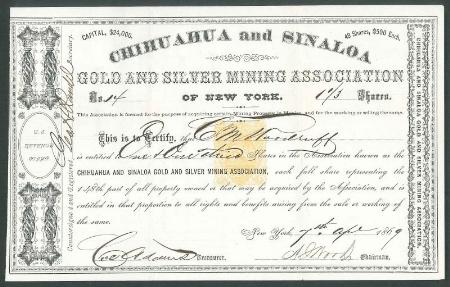 CAPITAL, $24,000.
48 Shares, $500 Each.
CHIHUAHUA and SINALOA
GOLD AND SILVER MINING ASSOCIATION
No. 14
OF NEW YORK.
1 1/3 Shares.
This Association is formed for the purpose of acquiring certain Mining Property in Mexico, and for the working or selling the same.
This is to Certify, that C M Woodruff
is entitled One & One third Shares in the Association known as the
CHIHUAHUA AND SINALOA GOLD AND SILVER MINING ASSOCIATION, each full share representing the
48th part of all property owned or that may be acquired by the Association, and is
entitled in that proportion to all rights and benefits arising from the sale or working of
the same.
New York, 7th Apl 1869
Treasurer.
Chairman.
U.S.
REVENUE
STAMP.
CHIHUAHUA AND SINALOA GOLD AND SILVER MINING ASSOCIATION.